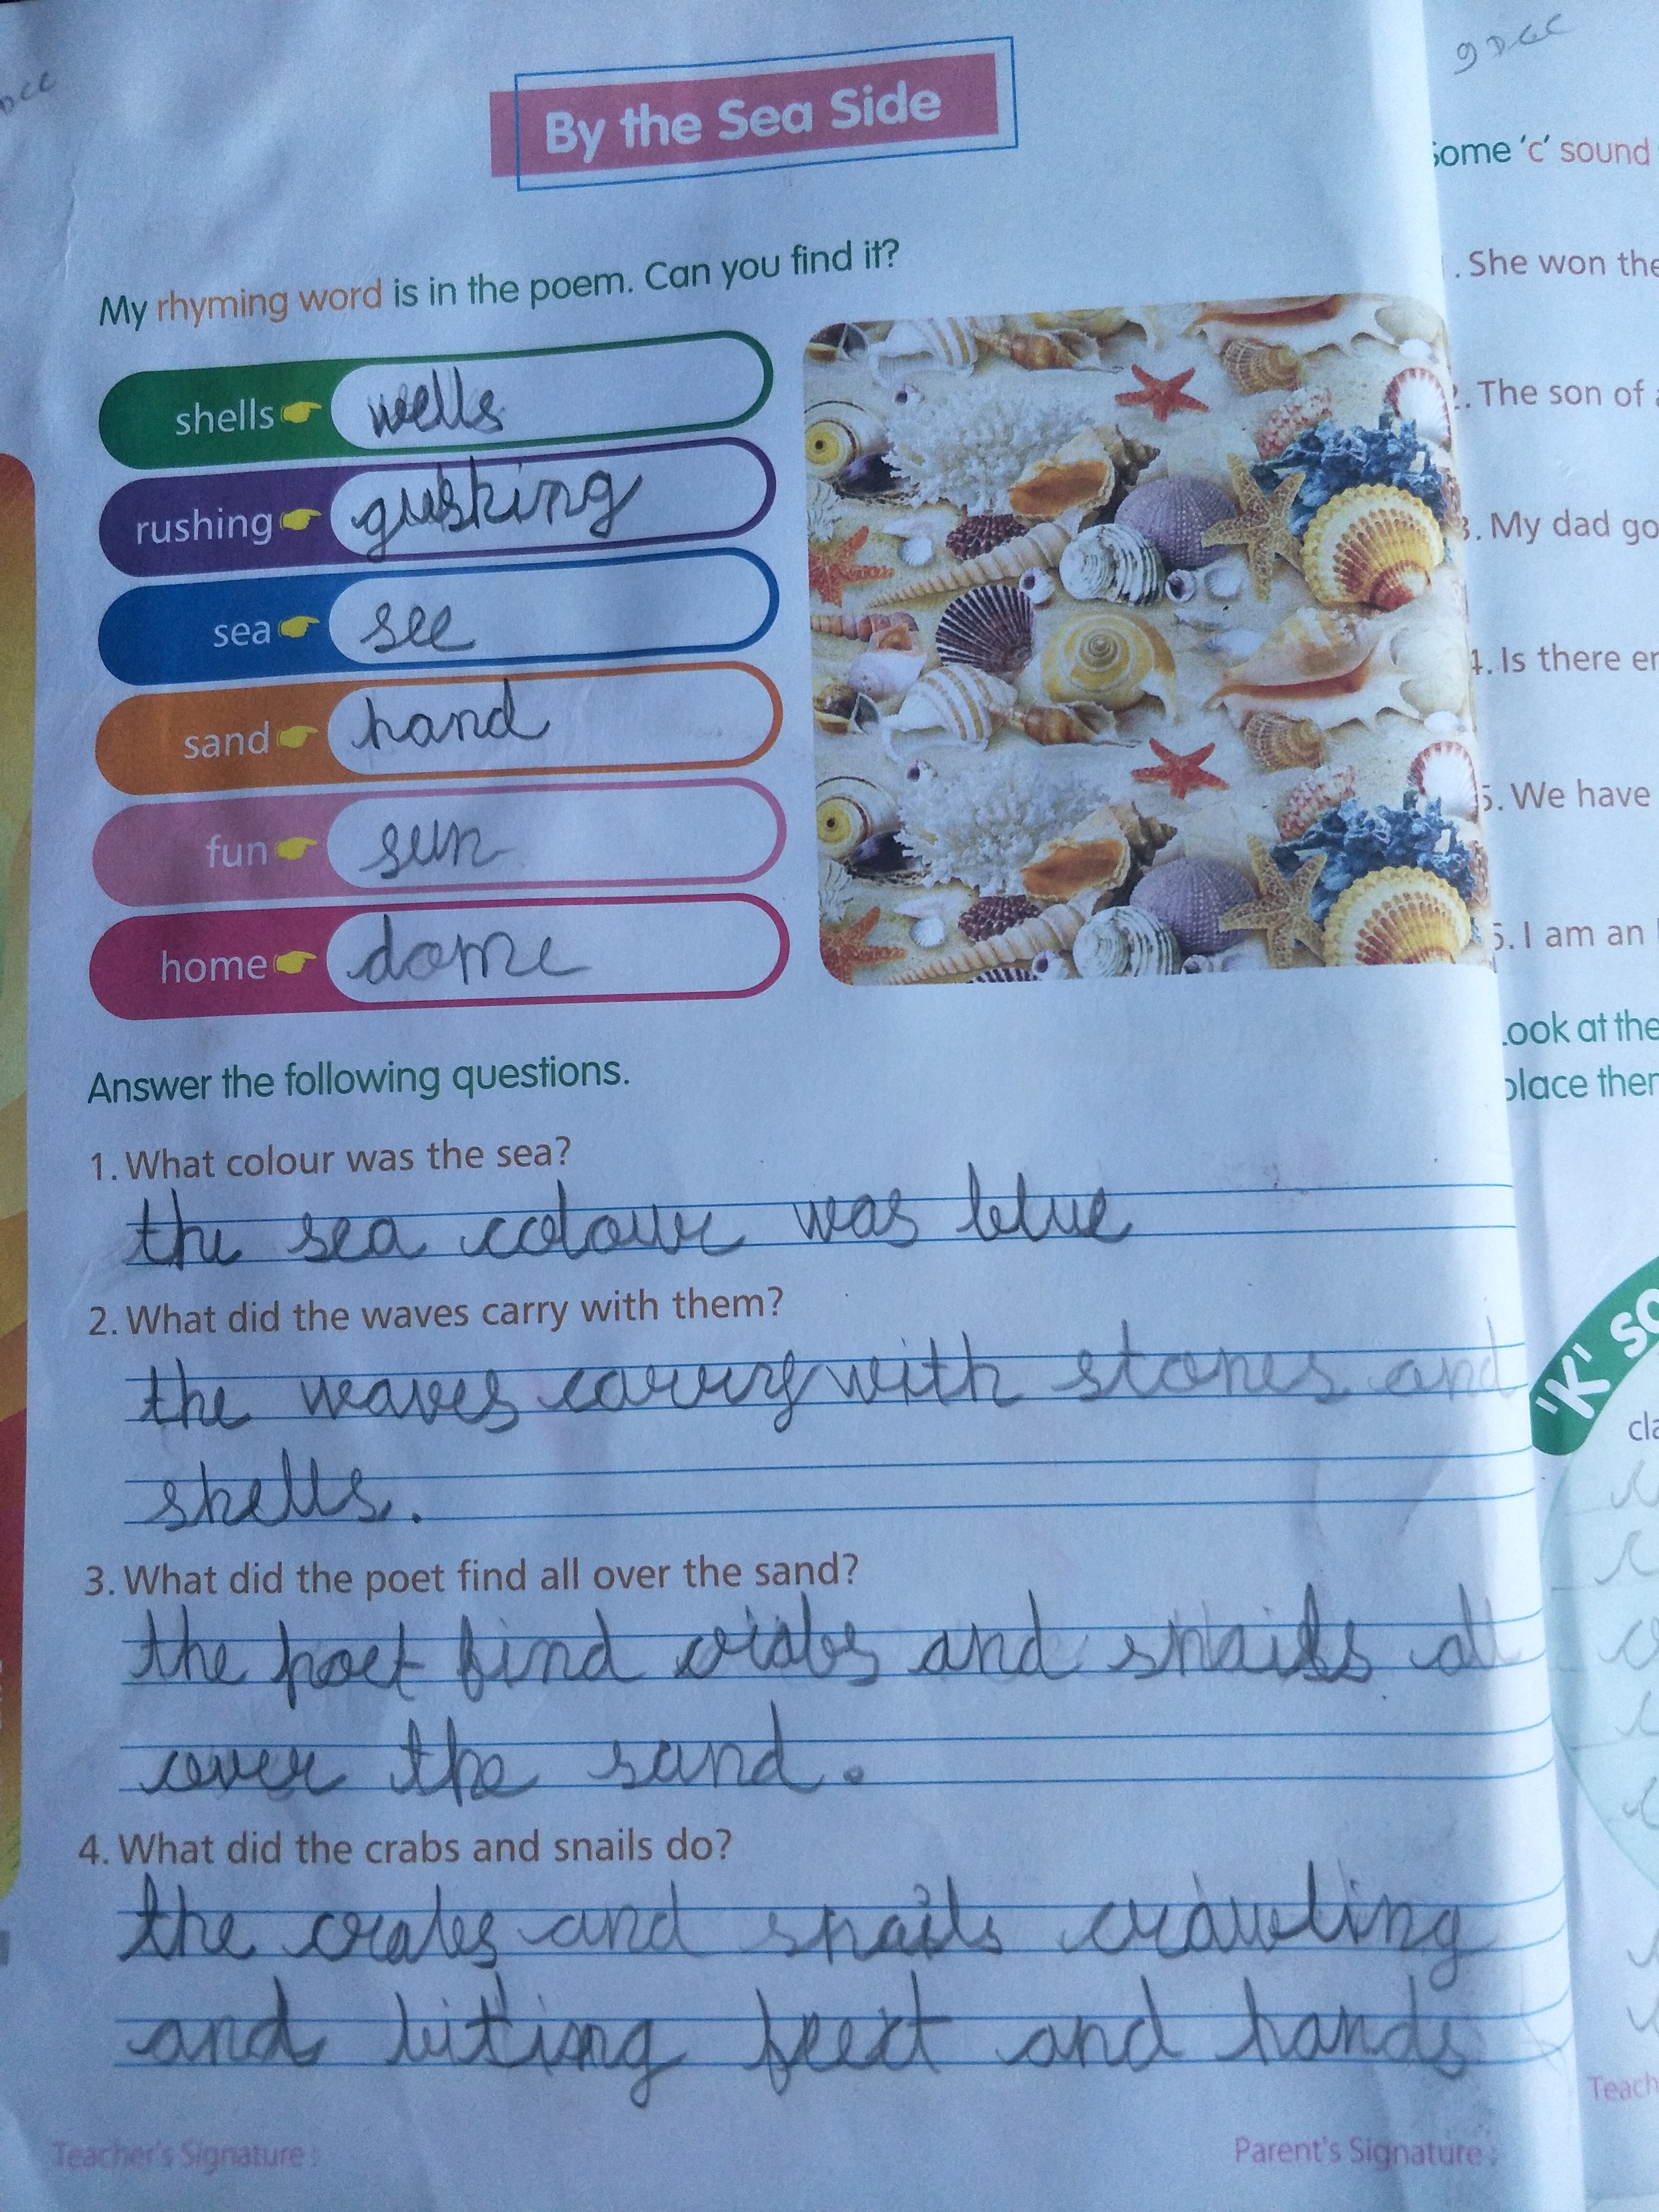 By the Sea Side
My rhyming word is in the poem. Can you find it?
shells wells
rushing gushing
sea see
sand hand
fun sun
home dome
Answer the following questions.
1. What colour was the sea?
the sea colour was blue
2. What did the waves carry with them?
the waves carry with stones and
shells.
3. What did the poet find all over the sand?
the poet find crabs and snails all
over the sand.
4. What did the crabs and snails do?
the crabs and snails crawling
and biting feet and hands
Teacher's Signature :
Parent's Signature :
some 'c' sound
. She won the
. The son of
3. My dad go
4. Is there
5. We have
. I am an
ook at the
place
'K'
Teach